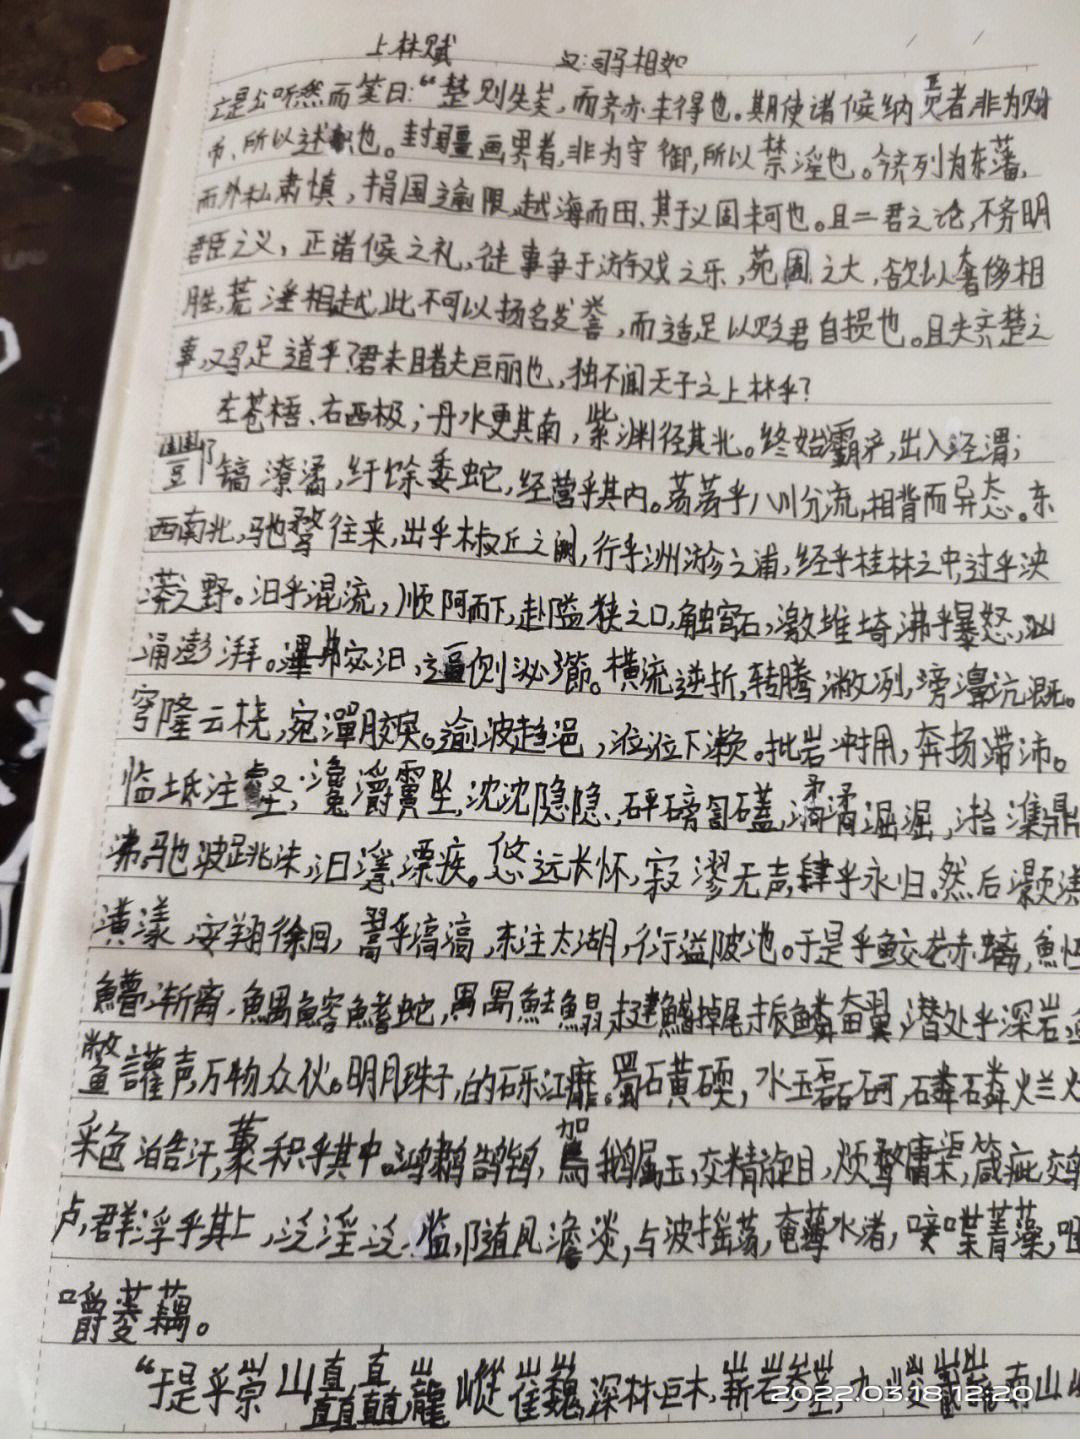 上林赋 文:司马相如
亡是公听然而笑曰:“楚则失矣,而齐亦未得也。期使诸候纳贡者,非为财
币、所以述职也。封疆画界者,非为守御,所以禁淫也。今齐列为东藩,
而外私肃慎,捐国逾限,越海而田、其于义固未可也。且二君之论,不务明
君臣之义,正诸候之礼,徒事争于游戏之乐,苑囿之大,欲以奢侈相
胜,荒淫相越,此不可以扬名发誉,而适足以贬君自损也。且夫齐楚之
事,又焉足道乎?君未睹夫巨丽也,独不闻天子之上林乎?
左苍梧、右西极;丹水更其南,紫渊径其北。终始霸产,出入泾渭;
酆镐潦潏,纡馀委蛇,经营乎其内。荡荡乎八川分流,相背而异态。东
西南北,驰骛往来,出乎椒丘之阙,行乎洲淤之浦,经乎桂林之中,过乎泱
漭之野。汩乎混流,顺阿而下,赴隘狭之口,触穹石,激堆埼,沸乎暴怒,汹
涌澎湃。滭弗宓汩,逼侧泌瀄。横流逆折,转腾潎冽,滂濞沆溉。
穹隆云桡,宛潬胶戾。逾波趋浥,涖涖下濑。批岩冲拥,奔扬滞沛。
临坻注壑,瀺灂霣坠,沈沈隐隐,砰磅訇礚,潏潏淈淈,湁潗鼎
沸,驰波跳沫,汩㴔漂疾。悠远长怀,寂漻无声,肆乎永归。然后灏溔
潢漾,安翔徐回,翯乎滈滈,东注太湖,衍溢陂池。于是乎鲛龙赤螭,
渐离,鰅鳙鳍蛇,禺禺魼鳎,揵鳍掉尾,振鳞奋翼,潜处乎深岩,鱼
鳖讙声,万物众伙。明月珠子,的砾江靡。蜀石黄碝,水玉磊砢,磷磷烂
采色澔汗,藂积乎其中。鸿鹔鹄鸨,鴐鹅属玉,交精旋目,烦鹜庸渠,箴疵
卢,群浮乎其上,泛淫泛滥,随风澹淡,与波摇荡,奄薄水渚,唼喋菁藻,咀
嚼菱藕。
“于是乎崇山矗矗,巃嵷崔巍,深林巨木,崭岩参差,九嵕巀嶭,南山
2022.03.18 12:20